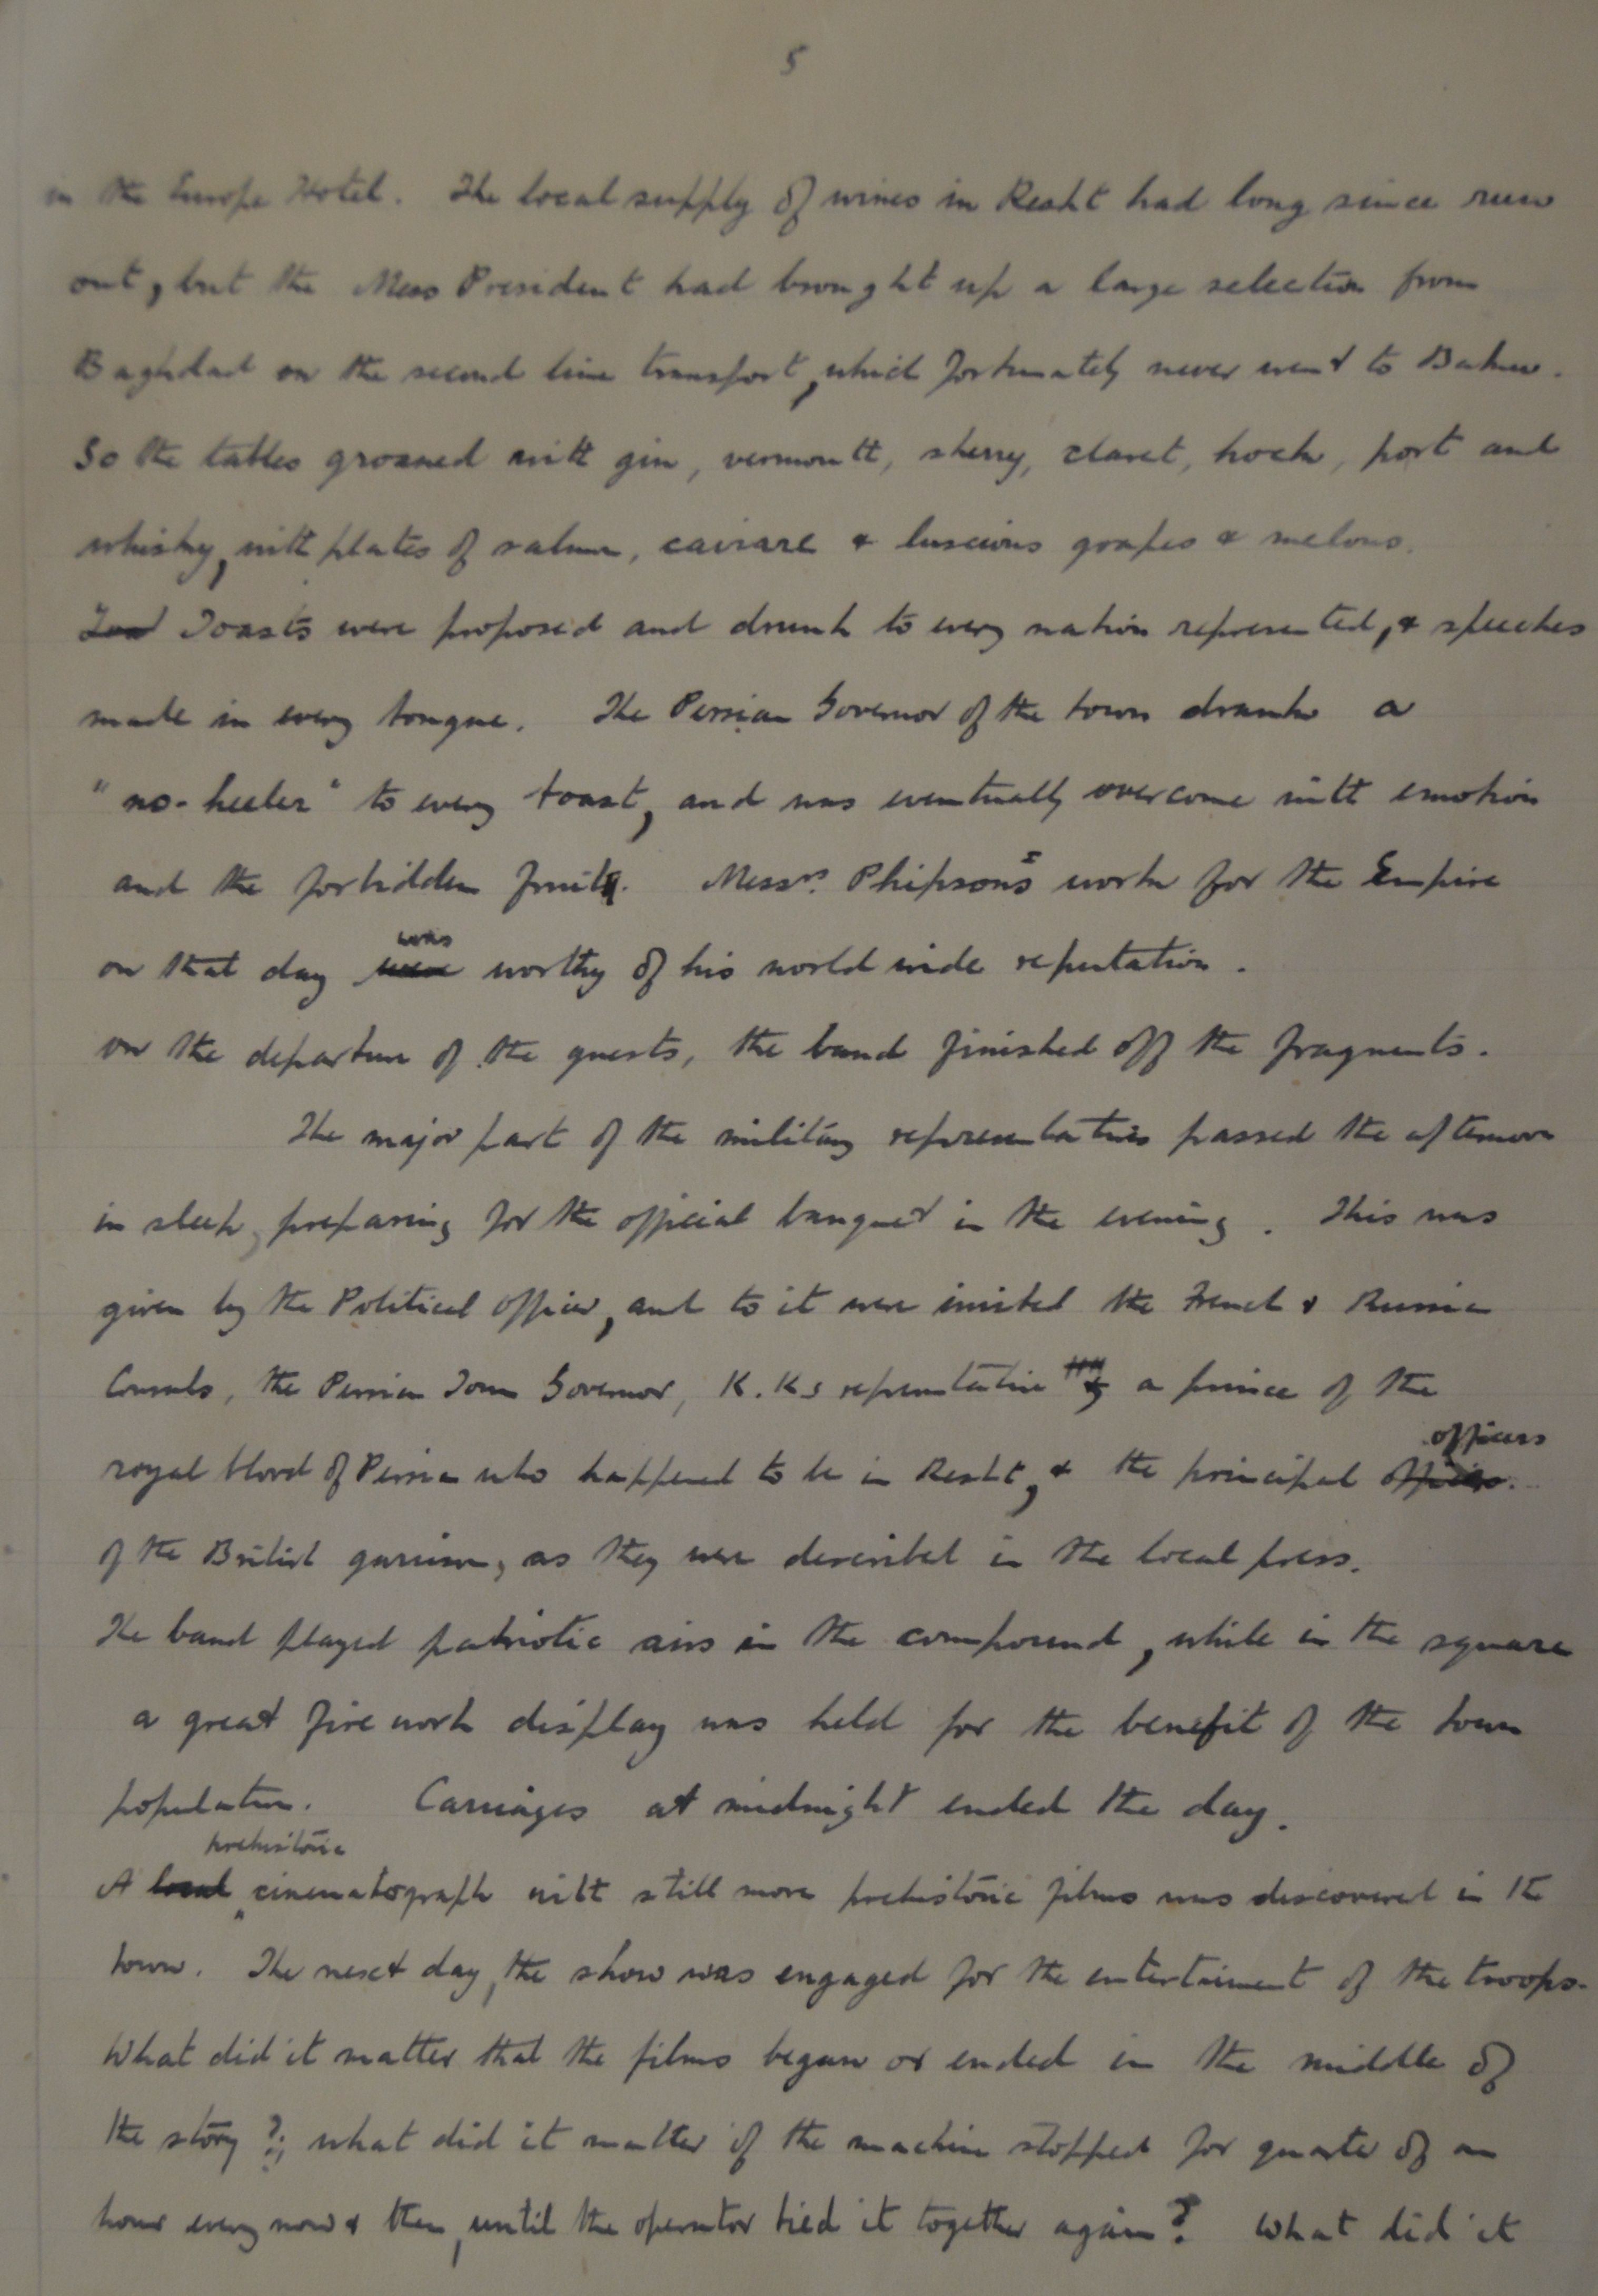 5
in the Europe Hotel. The local supply of wines in Resht had long since run
out, but the Mess President had brought up a large selection from
Baghdad on the second line transport, which fortunately never went to Baku.
So the tables groaned with gin, vermouth, sherry, claret, hock, port and
whisky, with plates of salmon, caviare & luscious grapes & melons.
Toasts were proposed and drunk to every nation represented, & speeches
made in every tongue. The Persian Governor of the town drank a
"no-heeler" to every toast, and was eventually overcome with emotion
and the forbidden fruit. Messrs. Phipson's work for the Empire
was
on that day were worthy of his world wide reputation.
on the departure of the guests, the band finished off the fragments.
The major part of the military representatives passed the afternoon
in sleep, preparing for the official banquet in the evening. This was
given by the Political officer, and to it were invited the French & Russian
Consuls, the Persian Town Governor, K.Ks representative a prince of the
officers
royal blood of Persia who happened to be in Resht, & the principal
of the British garrison, as they were described in the local press.
The band played patriotic airs in the compound, while in the square
a great fire work display was held for the benefit of the town
population. Carriages at midnight ended the day.
prehistoric
A local cinematograph with still more prehistoric films was discovered in the
town. The next day, the show was engaged for the entertaiment of the troops.
What did it matter that the films began or ended in the middle of
the story?; what did it matter if the machine stopped for quarter of an
hour every now & then, until the operator tied it together again? What did it